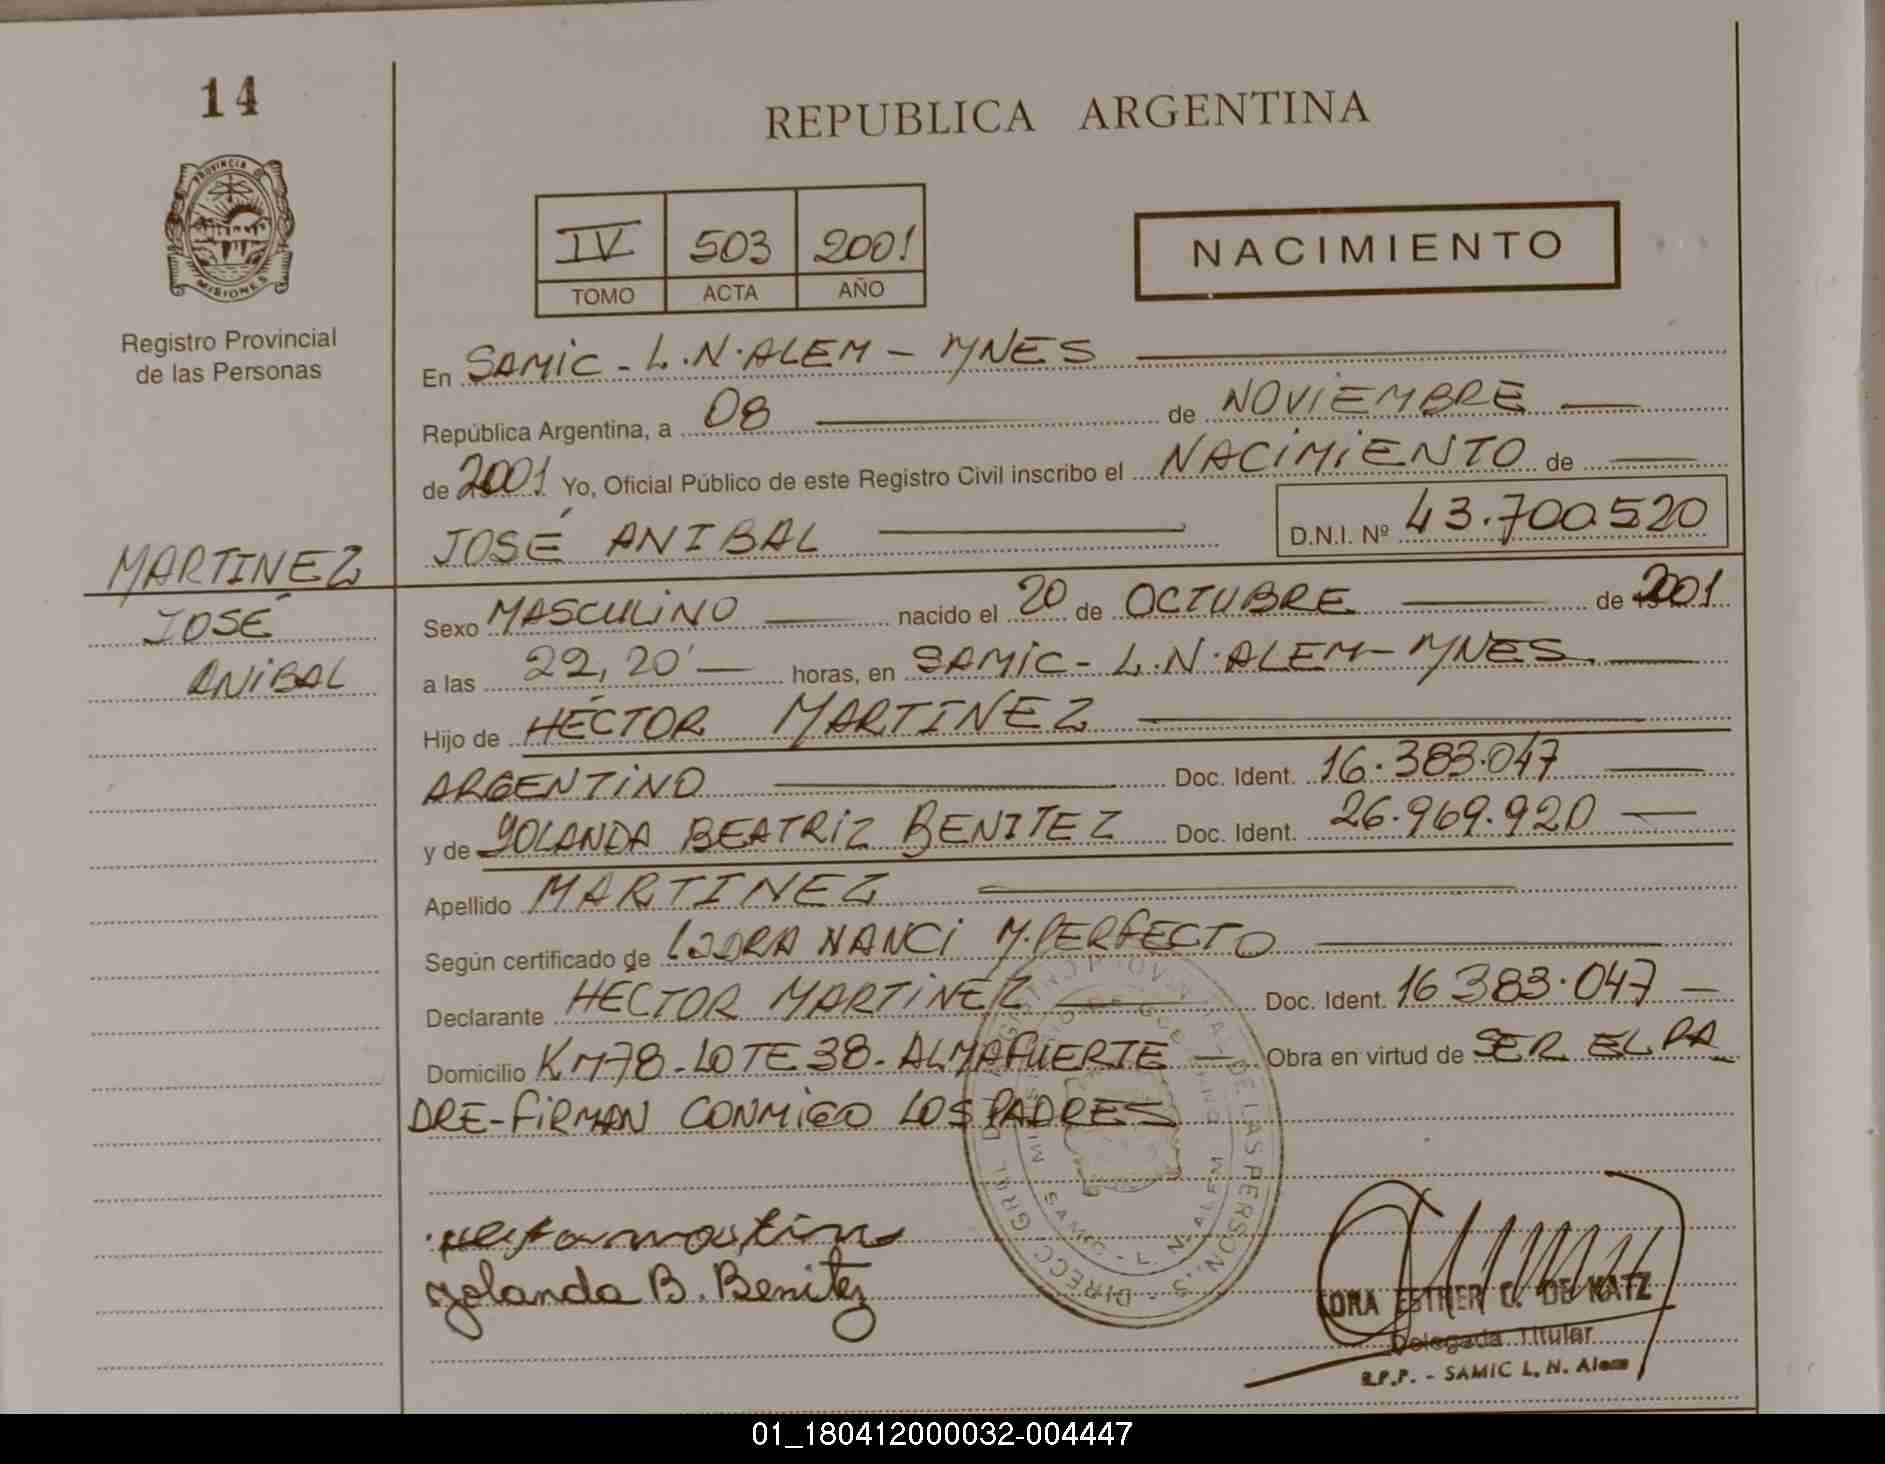 14
PROVINCIA
MISIONES
Registro Provincial
de las Personas
MARTINEZ
JOSÉ
ANIBAL
REPUBLICA ARGENTINA
IV 503 2001
TOMO ACTA AÑO
NACIMIENTO
En SAMIC - L.N. ALEM - MNES
República Argentina, a 08 de NOVIEMBRE
de 2001 Yo, Oficial Público de este Registro Civil inscribo el NACIMIENTO de
JOSÉ ANIBAL D.N.I. Nº 43.700.520
Sexo MASCULINO nacido el 20 de OCTUBRE de 2001
a las 22,20' horas, en SAMIC - L.N. ALEM - MNES
Hijo de HÉCTOR MARTINEZ
ARGENTINO Doc. Ident. 16.383.047
y de YOLANDA BEATRIZ BENITEZ Doc. Ident. 26.969.920
Apellido MARTINEZ
Según certificado de NANCI M. PERFECTO
Declarante HÉCTOR MARTINEZ Doc. Ident. 16 383.047
Domicilio KM78 - LOTE 38 - ALMAFUERTE Obra en virtud de SER EL PA
DRE - FIRMAN CONMIGO LOS PADRES
Yolanda B. Benitez
ESTHER C. DE KATZ
Delegada Titular
R.P.P. - SAMIC L. N. Alem
01_180412000032-004447